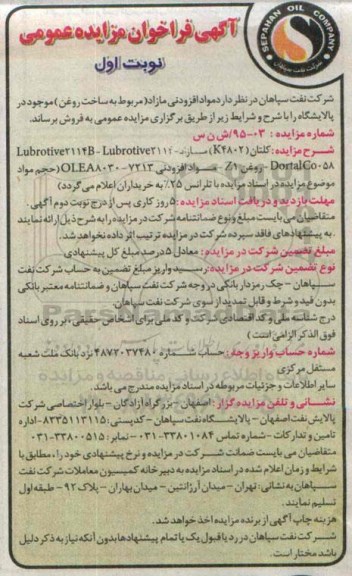 آگهی فراخوان مزایده عمومی
نوبت اول
SEPAHAN OIL COMPANY
شرکت نفت سپاهان
شرکت نفت سپاهان در نظر دارد مواد افزودنی مازاد (مربوط به ساخت روغن) موجود در
پالایشگاه را با شرح و شرایط زیر از طریق برگزاری مزایده عمومی به فروش برساند.
شماره مزایده : ۰۳-۹۵/ش ن س
شرح مزایده: کلتان (K۴۸۰۲) سازند- Lubrotive۲۱۱۴B - Lubrotive۲۱۱۴
DortalCo۰۵۸ - روغن Z۹ - مواد افزودنی ۷۲۱۳-OLEA۸۰۳۰ (حجم مواد
موضوع مزایده در اسناد مزایده با تلرانس ۲۵٪ به خریداران اعلام می گردد)
مهلت بازدید و دریافت اسناد مزایده: ۵ روز کاری پس از درج نوبت دوم آگهی
متقاضیان می بایست مبلغ و نوع ضمانتنامه شرکت در مزایده را به شرح ذیل ارائه نمایند
به پیشنهادهای فاقد سپرده شرکت در مزایده ترتیب اثر داده نخواهد شد.
مبلغ تضمین شرکت در مزایده: معادل ۵ درصد مبلغ کل پیشنهادی
نوع تضمین شرکت در مزایده: رسید واریز مبلغ تضمین به حساب شرکت نفت
سپاهان - چک رمزدار بانکی در وجه شرکت نفت سپاهان و ضمانتنامه معتبر بانکی
بدون قید و شرط و قابل تمدید از سوی شرکت نفت سپاهان.
درج شناسه ملی و کد اقتصادی شرکت و کد ملی برای اشخاص حقیقی، بر روی اسناد
فوق الذکر الزامی است)
شماره حساب واریز وجه: حساب شماره ۴۸۷۲۰۳۷۴۸۰ نزد بانک ملت شعبه
مستقل مرکزی
سایر اطلاعات و جزئیات مربوطه در اسناد مزایده مندرج می باشد.
نشانی و تلفن مزایده گزار: اصفهان - بزرگراه آزادگان - بلوار اختصاصی شرکت
پالایش نفت اصفهان - پالایشگاه نفت سپاهان - کدپستی: ۸۳۳۵۱۱۳۱۱۵ - اداره
تامین و تدارکات - شماره تماس ۳۳۸۰۱۰۸۴-۰۳۱ - نمابر: ۳۳۸۰۰۵۱۵-۰۳۱
متقاضیان می بایست ضمانت شرکت در مزایده و نرخ پیشنهادی خود را، مطابق با
شرایط و زمان اعلام شده در اسناد مزایده به دبیرخانه کمیسیون معاملات شرکت نفت
سپاهان به نشانی: تهران - میدان آرژانتین - میدان بهاران - پلاک ۹۲ - طبقه اول
تسلیم نمایند.
هزینه چاپ آگهی از برنده مزایده اخذ خواهد شد.
شرکت نفت سپاهان در رد یا قبول یک یا تمام پیشنهادها بدون آنکه نیاز به ذکر دلیل
باشد مختار است.